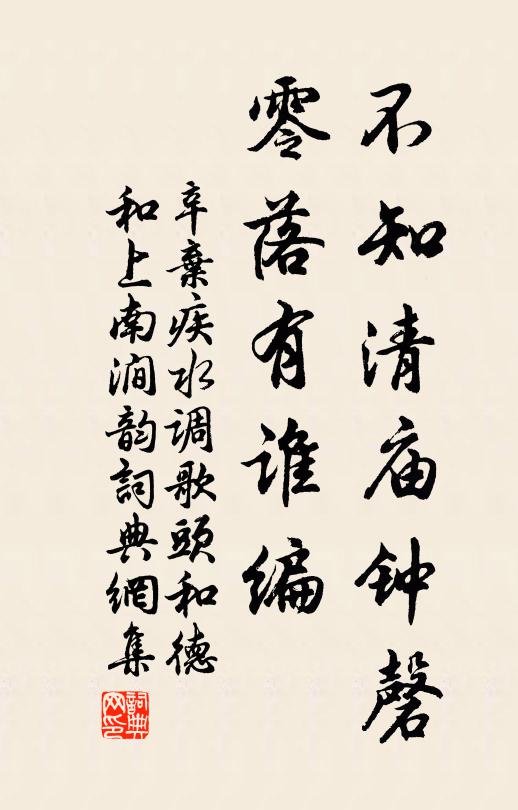 不知清庙钟磬
零落有谁编
辛棄疾水调歌頭和德
和上南澗韵詞典網集
詞典网印